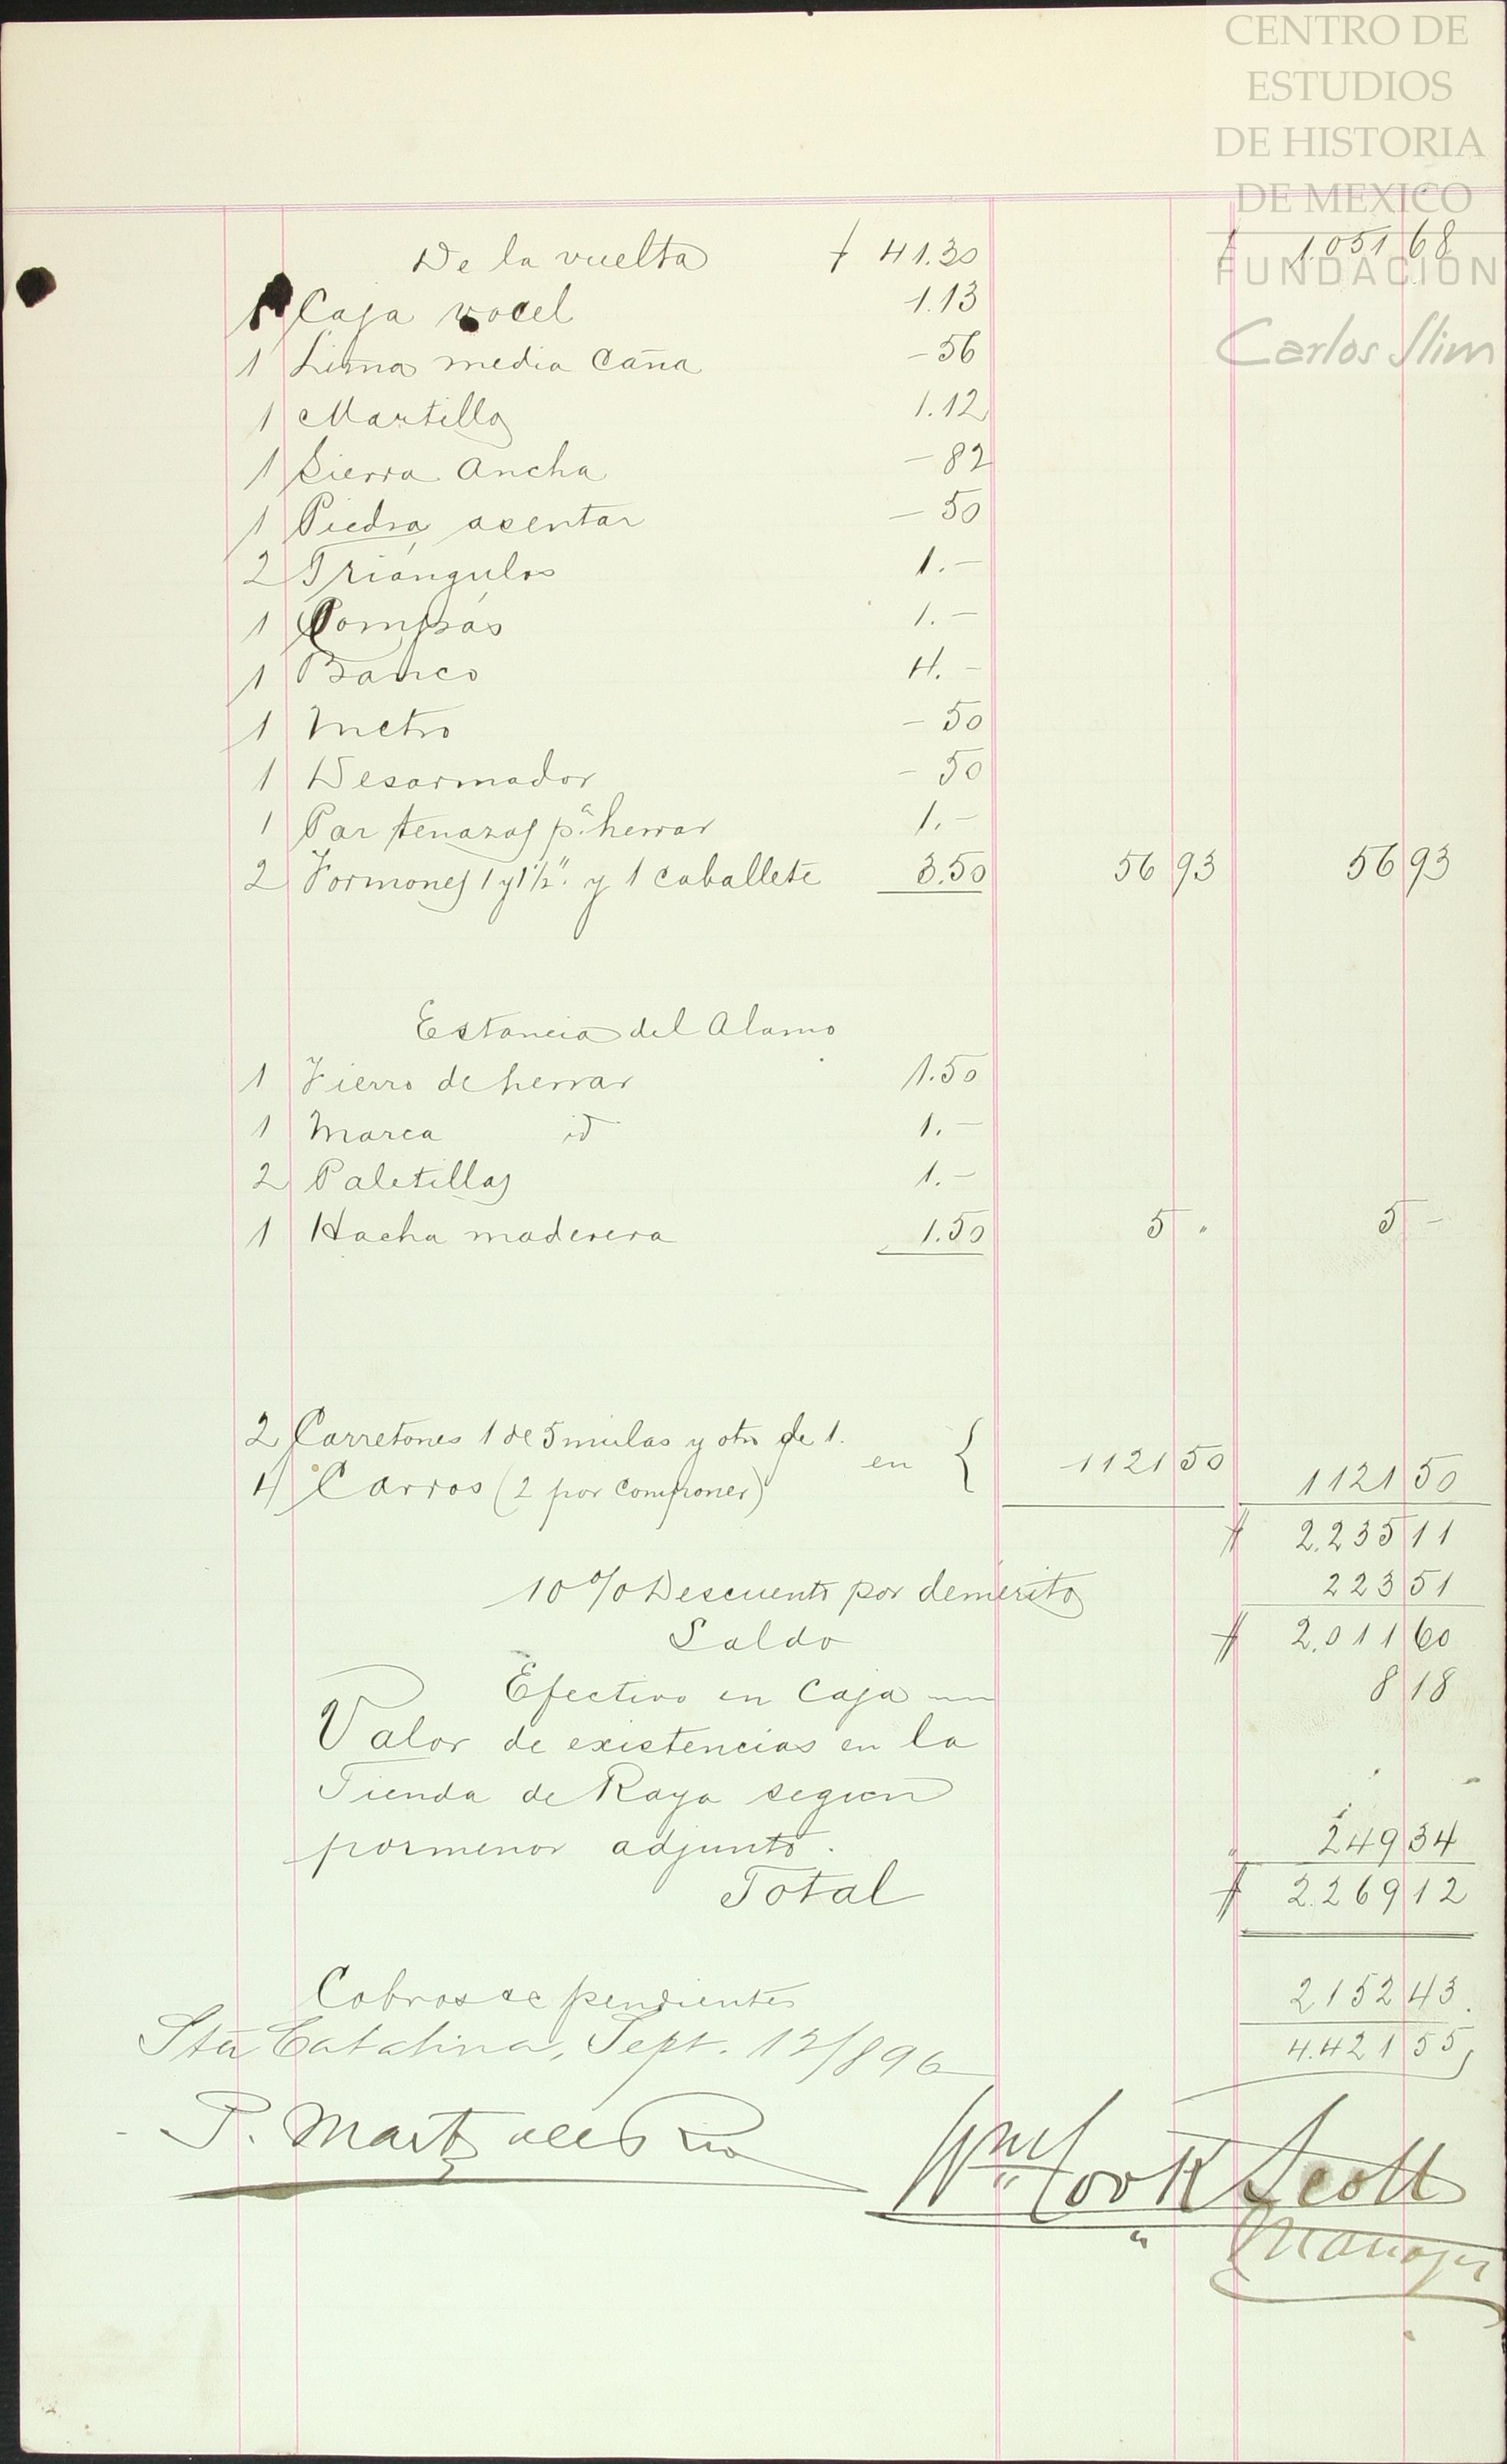 CENTRO DE
ESTUDIOS
DE HISTORIA
DE MEXICO
FUNDACION
Carlos Slim
De la vuelta $ 41.30 $ 1.051 68
1 Caja vocel 1.13
1 Lima media caña - 56
1 Martillo 1.12
1 Sierra ancha - 82
1 Piedra asentar - 50
2 Triángulos 1. -
1 Compás 1. -
1 Banco 4. -
1 Metro - 50
1 Desarmador - 50
1 Par tenazas pª herrar 1. -
2 Formones 1 y 1½" y 1 caballete 3.50 56 93 56 93
Estancia del Alamo
1 Fierro de herrar 1.50
1 Marca id 1. -
2 Paletillas 1. -
1 Hacha maderera 1.50 5 " 5 -
2 Carretones 1 de 5 mulas y otro de 1.
4 Carros (2 por componer) en { 1121 50 1121 50
$ 2.235 11
10% Descuento por demérito 223 51
Saldo $ 2.011 60
Efectivo en Caja 8 18
Valor de existencias en la
Tienda de Raya segun
pormenor adjunto. 249 34
Total $ 2.269 12
Cobros pendientes 2152 43
Sta Catalina, Sept. 12/896 4.421 55
P. Martz del Rio
Wm Cook Scott
Manager